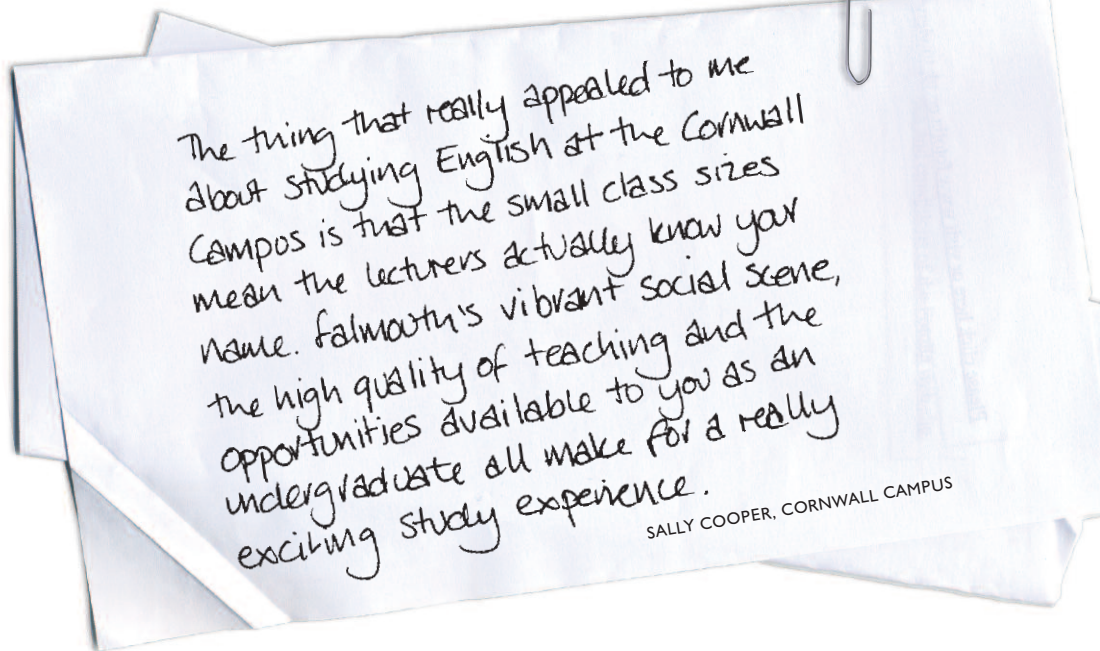 The thing that really appealed to me
about studying English at the Cornwall
Campus is that the small class sizes
mean the lecturers actually know your
name. Falmouth's vibrant social scene,
the high quality of teaching and the
opportunities available to you as an
undergraduate all make for a really
exciting study experience.
SALLY COOPER, CORNWALL CAMPUS